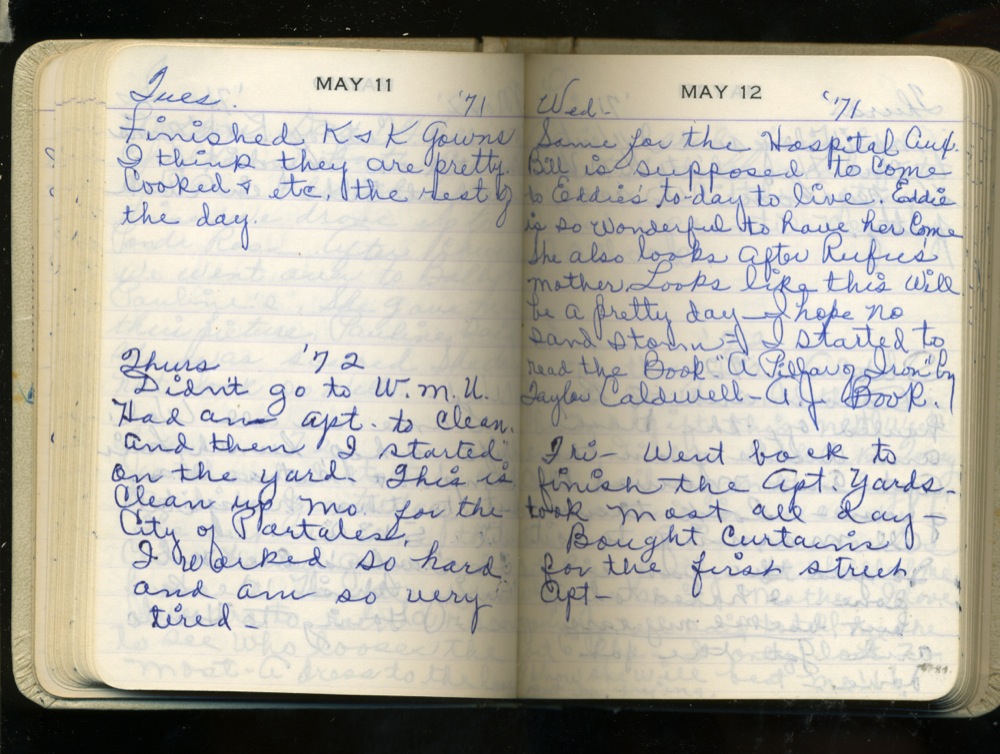 MAY 11
Tues. '71
Finished K & K Gowns
I think they are pretty.
Cooked & etc, the rest of
the day.
Thurs '72
Didn't go to W.M.U.
Had an apt. to clean.
and then I started
on the yard. This is
Clean up Mo. for the
City of Portales.
I worked so hard
and am so very
tired
MAY 12
Wed- '71
Same for the Hospital Aux.
Bill is supposed to come
to Eddie's to-day to live. Eddie
is so wonderful to have her come
She also looks after Rufus'
mother. Looks like this will
be a pretty day - I hope no
sand storm - I started to
read the Book "A Pillar of Iron" by
Taylor Caldwell - A.J. Book.
Fri- Went back to
finish the Apt. Yards-
took most all day -
Bought Curtains
for the first street
Apt-